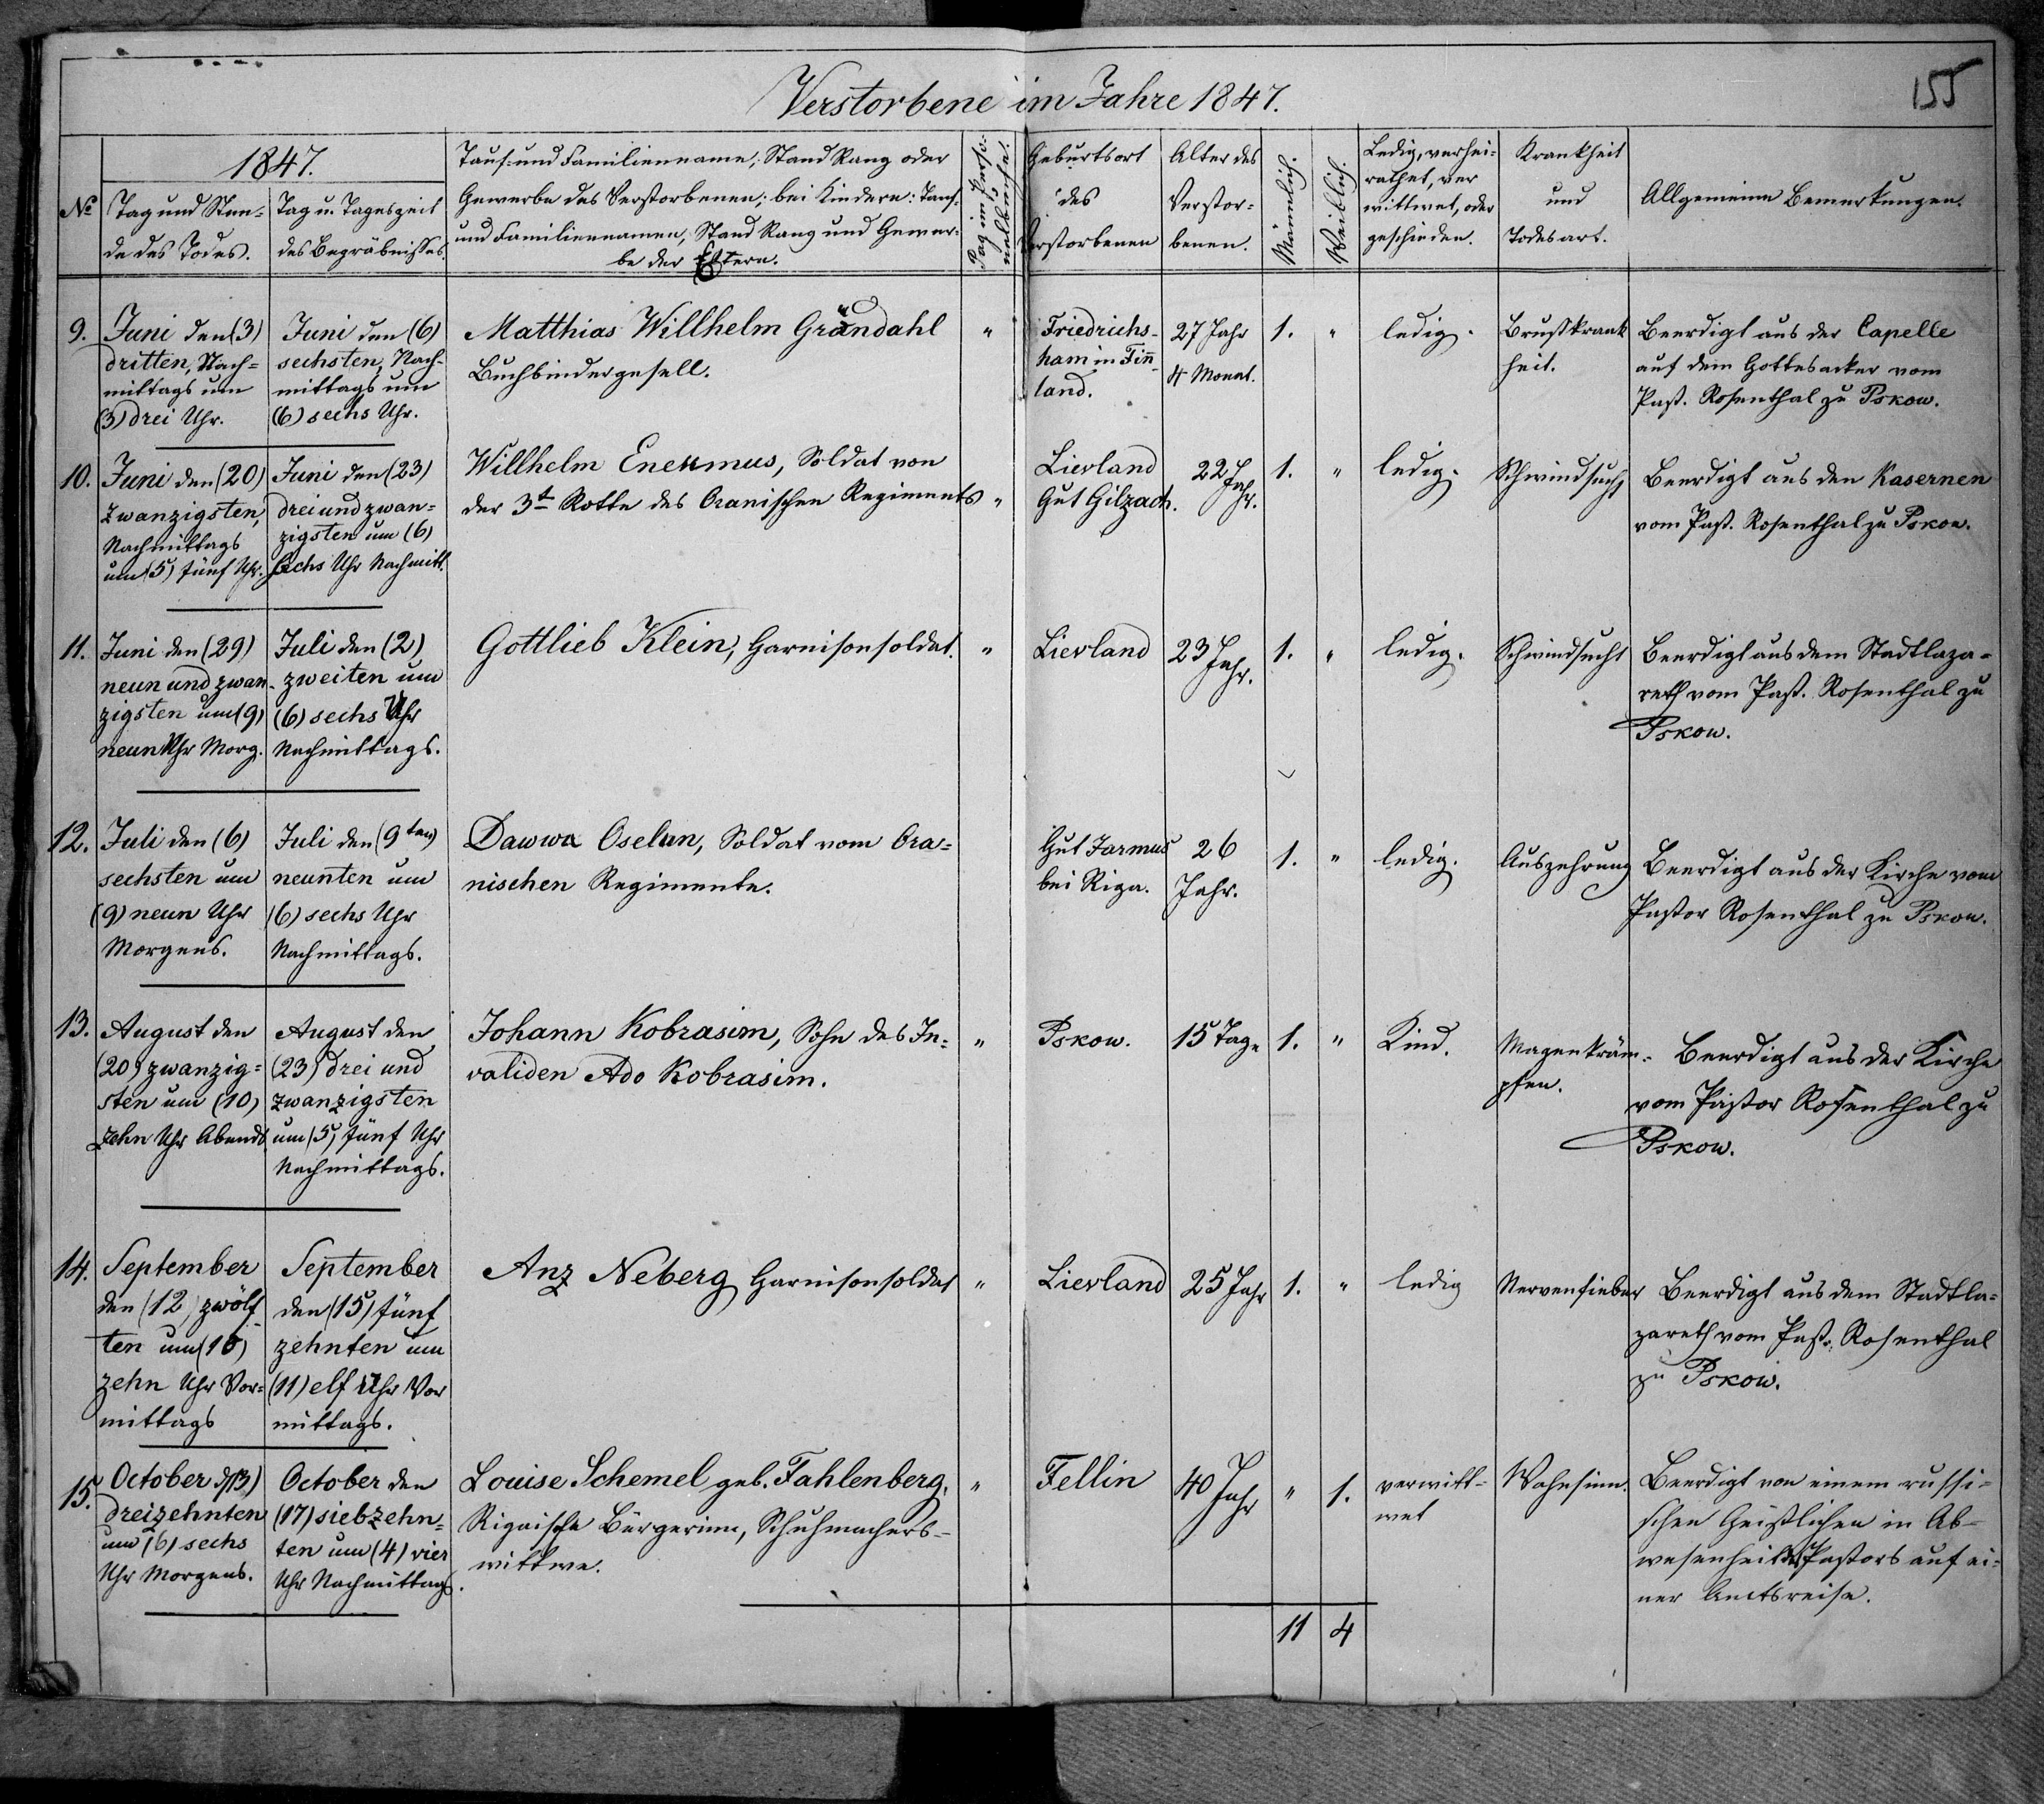 155
Verstorbene im Jahre 1847.
1847.
No
Tag und Stun-
de des Todes.
Tag u. Tageszeit
des Begräbnisses.
Tauf- und Familienname, Stand Rang oder
Gewerbe des Verstorbenen; bei Kindern: Tauf-
und Familiennamen, Stand Rang und Gewer-
be der Eltern.
Tag im Perso-
Geburtsort
des
Verstorbenen
Alter des
Verstor-
benen.
Männlich.
Weiblich.
Ledig, verhei-
rathet, ver
wittwet, oder
geschieden.
Krankheit
und
Todesart.
Allgemeine Bemerkungen.
9.
Juni den (3)
dritten, Nach-
mittags um
(3) drei Uhr.
Juni den (6)
sechsten, Nach-
mittags um
(6) sechs Uhr.
Matthias Willhelm Grändahl
Buchbindergesell.
"
Friedrichs-
ham in Fin̄-
land.
27 Jahr
4 Monat.
1.
"
ledig.
Brustkrank
heit.
Beerdigt aus der Capelle
auf dem Gottesacker vom
Past. Rosenthal zu Pskow.
10.
Juni den (20)
zwanzigsten,
Nachmittags
um (5) fünf Uhr.
Juni den (23)
drei und zwan-
zigsten um (6)
sechs Uhr Nachmitt.
Willhelm Enekmus, Soldat von
der 3t Rotte des Oranischen Regiments
"
Lievland
Gut Gilzach.
22 Jahr.
1.
"
ledig.
Schwindsucht
Beerdigt aus den Kasernen
vom Past. Rosenthal zu Pskow.
11.
Juni den (29)
neun und zwan-
zigsten um (9)
neun Uhr Morg.
Juli den (2)
zweiten um
(6) sechs Uhr
Nachmittags.
Gottlieb Klein, Garnisonsoldat.
"
Lievland
23 Jahr.
1.
"
ledig.
Schwindsucht
Beerdigt aus dem Stadtlaza-
reth vom Past. Rosenthal zu
Pskow.
12.
Juli den (6)
sechsten um
(9) neun Uhr
Morgens.
Juli den (9ten)
neunten um
(6) sechs Uhr
Nachmittags.
Dawwa Oselan, Soldat vom Ora-
nischen Regimente.
Gut Jarmus
bei Riga.
26
Jahr.
1.
"
ledig.
Auszehrung
Beerdigt aus der Kirche vom
Pastor Rosenthal zu Pskow.
13.
August den
(20) zwanzig-
sten um (10)
zehn Uhr Abends
August den
(23) drei und
zwanzigsten
um (5) fünf Uhr
Nachmittags.
Johann Kobrasim, Sohn des In-
validen Ado Kobrasim.
"
Pskow.
15 Tage
1.
"
Kind.
Magenkräm-
pfen.
Beerdigt aus der Kirche
vom Pastor Rosenthal zu
Pskow.
14.
September
den (12) zwölf-
ten um (10)
zehn Uhr Vor-
mittags
September
den (15) fünf
zehnten um
(11) elf Uhr Vor
mittags.
Anz Neberg Garnisonsoldat
"
Lievland
25 Jahr
1.
"
ledig
Nervenfieber
Beerdigt aus dem Stadtla-
zareth vom Past. Rosenthal
zu Pskow.
15.
October d (13)
dreizehnten
um (6) sechs
Uhr Morgens.
October den
(17) siebzehn-
ten um (4) vier
Uhr Nachmittags.
Louise Schemel geb. Fahlenberg,
Rigaische Bürgerinn, Schuhmachers-
wittwe.
"
Fellin
40 Jahr
"
1.
verwitt-
wet
Wahnsinn.
Beerdigt von einem russi-
schen Geistlichen in Ab-
wesenheit des Pastors auf ei-
ner Amtsreise.
11
4